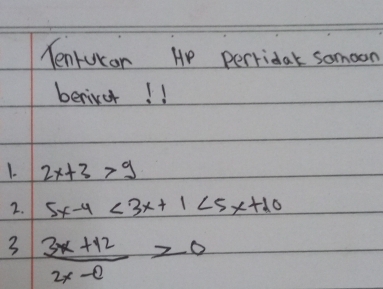 Tentukan HP Pertidak samaan
berikut !!
1. 2x+3 > 9
2. 5x-4 < 3x + 1 < 5x+10
3 3x +12 ≥ 0
2x -